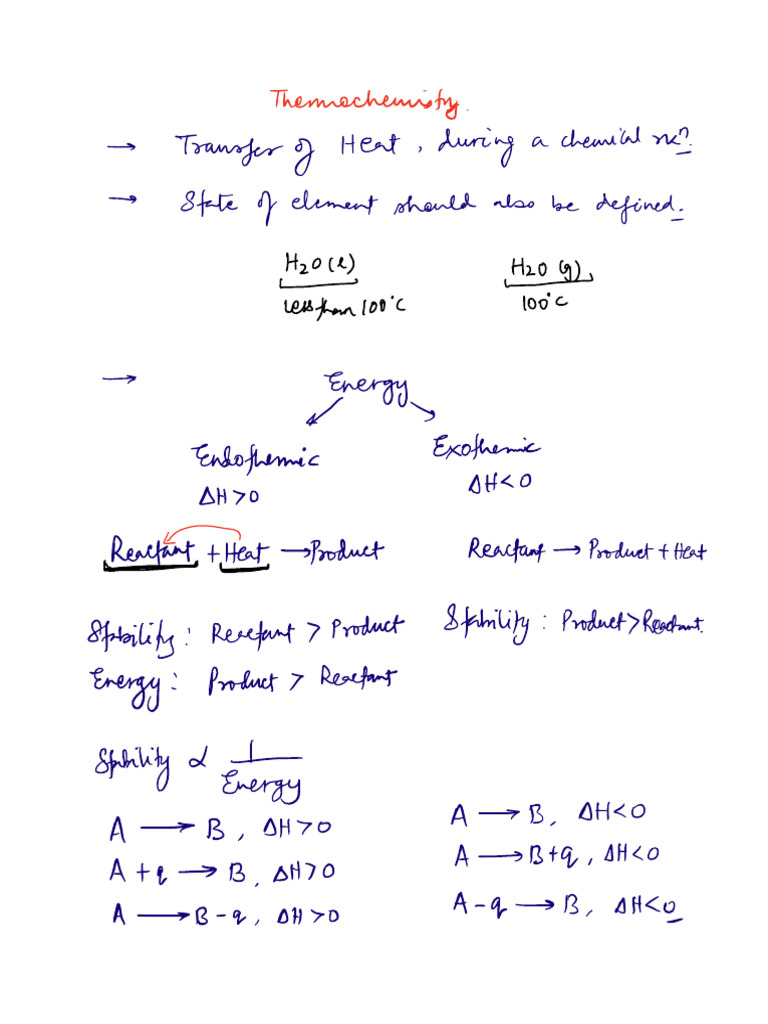 Thermochemistry.
→ Transfer of Heat, during a chemical rxn.
→ State of element should also be defined.
H2O(l) H2O (g)
less than 100°C 100°C
→ Energy
Endothermic Exothermic
ΔH>0 ΔH<0
Reactant + Heat → Product Reactant → Product + Heat
Stability: Reactant > Product Stability: Product > Reactant.
Energy: Product > Reactant
Stability ∝ 1/Energy
A → B, ΔH>0 A → B, ΔH<0
A + q → B, ΔH>0 A → B+q, ΔH<0
A → B-q, ΔH>0 A-q → B, ΔH<0